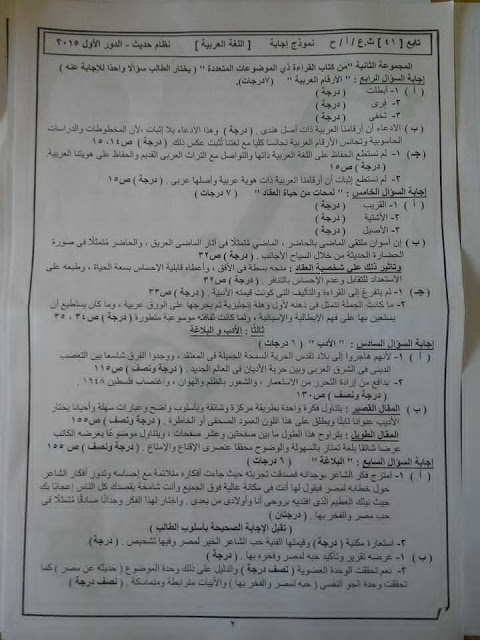 تابع [ ٤١ ] ث.ع / أ / ح نموذج إجابة [ اللغة العربية ] نظام حديث - الدور الأول ٢٠١٥
المجموعة الثانية "من كتاب القراءة ذي الموضوعات المتعددة " ( يختار الطالب سؤالًا واحدًا للإجابة عنه )
إجابة السؤال الرابع : " الأرقام العربية " (٧درجات).
( أ ) ١- أبطلت ( درجة )
٢- فرى ( درجة )
٣- تخفى ( درجة )
(ب) الادعاء بأن أرقامنا العربية ذات أصل هندى . ( درجة ) وهذا الادعاء بلا إثبات ،لأن المخطوطات والدراسات
الحاسوبية وتجانس الأرقام العربية تجانسا كليا مع لغتنا تثبت عكس ذلك . ( درجة ) ص١٤، ١٥
(جـ) ١- لم نستطع الحفاظ على اللغة العربية ذاتها والتواصل مع التراث العربى القديم والحفاظ على هويتنا العربية.
( درجة ) ص١٥
٢- لم نستطع إثبات أن أرقامنا العربية ذات هوية عربية وأصلها عربى . ( درجة ) ص١٥
إجابة السؤال الخامس : " لمحات من حياة العقاد " ( ٧ درجات )
( أ ) ١- القريب ( درجة )
٢- الأشتية ( درجة )
٣- الأصيل ( درجة )
(ب) إن أسوان ملتقى الماضى بالحاضر ، الماضي مُتمثلًا فى آثار الماضى العريق ، والحاضر مُتمثلًا في صورة
الحضارة الحديثة من خلال السياح الأجانب . ( درجة ) ص٣٢
وتأثير ذلك على شخصية العقاد : منحه بسطة فى الأفق ، وأعطاه قابلية الإحساس بسعة الحياة ، وطبعه على
الاستعداد للتقابل وعدم الإحساس بالتنافر . ( درجة ) ص٣٢
(جـ) ١- لم يتفرغ إلى القراءة والتأليف التى كونت قيمته الأدبية . ( درجة ) ص٣٣
٢- ما كانت الجملة تتمثل فى ذهنه لأول وهلة إنجليزية ثم يخرجها على الورق عربية ، وما كان يستطيع أن
يستعين بها على فهم الإيطالية والإسبانية ، ولما كانت ثقافته موسوعية متطورة ( درجة ) ص٣٤ ، ٣٥
ثالثًا : الأدب و البلاغة
إجابة السؤال السادس : " الأدب " ( ٦ درجات )
( أ ) ١- لأنهم هاجروا إلى بلاد تقدس الحرية السمحة الجميلة فى المعتقد ، ووجدوا الفرق شاسعا بين التعصب
الدينى فى الشرق العربى وبين حرية الأديان فى العالم الجديد . ( درجة ونصف ) ص١١٥
٢- بدافع من إرادة التحرر من الاستعمار ، والشعور بالظلم والهوان ، واغتصاب فلسطين ١٩٤٨ .
( درجة ونصف ) ص١٣٠
(ب) المقال القصير : يتناول فكرة واحدة بطريقة مركزة وشائقة وبأسلوب واضح وعبارات سهلة وأحيانا يختار
الأديب عنوانا ثابتًا ويطلق على هذا اللون العمود الصحفى أو الخاطرة . ( درجة ونصف ) ص١٥٥
المقال الطويل : يتراوح هذا الطول ما بين صفحتين وعشر صفحات ، ويتناول موضوعًا يعرضه الكاتب
عرضا شائقا بلغة تمتاز بالسهولة والوضوح محققا عنصرى الإقناع والإمتاع . ( درجة ونصف ) ص١٥٥
إجابة السؤال السابع : " البلاغة " ( ٦ درجات )
( أ ) ١- امتزج فكر الشاعر بوجدانه فصدقت تجربته حيث جاءت أفكاره متلائمة مع إحساسه وتدور أفكار الشاعر
حول خطابه لمصر فيقول لها أنت فى مكانة عالية فوق الجميع وأنت شامخة يقصدك كل الناس إعجابًا بك
حيث نيلك العظيم الذى أفتديه بروحى أنا وأولادى من بعدى . واختار لهذا الفكر وجدانًا صادقًا مُتمثلًا فى
حب مصر والفخر بها . ( درجتان )
( تقبل الإجابة الصحيحة بأسلوب الطالب )
٢- استعارة مكنية ( درجة ) وقيمتها الفنية حب الشاعر الخير لمصر وفيها تشخيص . ( درجة )
(ب) ١- غرضه تقرير وتأكيد حبه لمصر وفخره بها . ( درجة )
٢- نعم تحققت الوحدة العضوية ( نصف درجة ) والدليل على ذلك وحدة الموضوع ( حديثه عن مصر ) كما
تحققت وحدة الجو النفسي (حبه لمصر والفخر بها ) والأبيات مترابطة ومتماسكة . ( نصف درجة )
٢